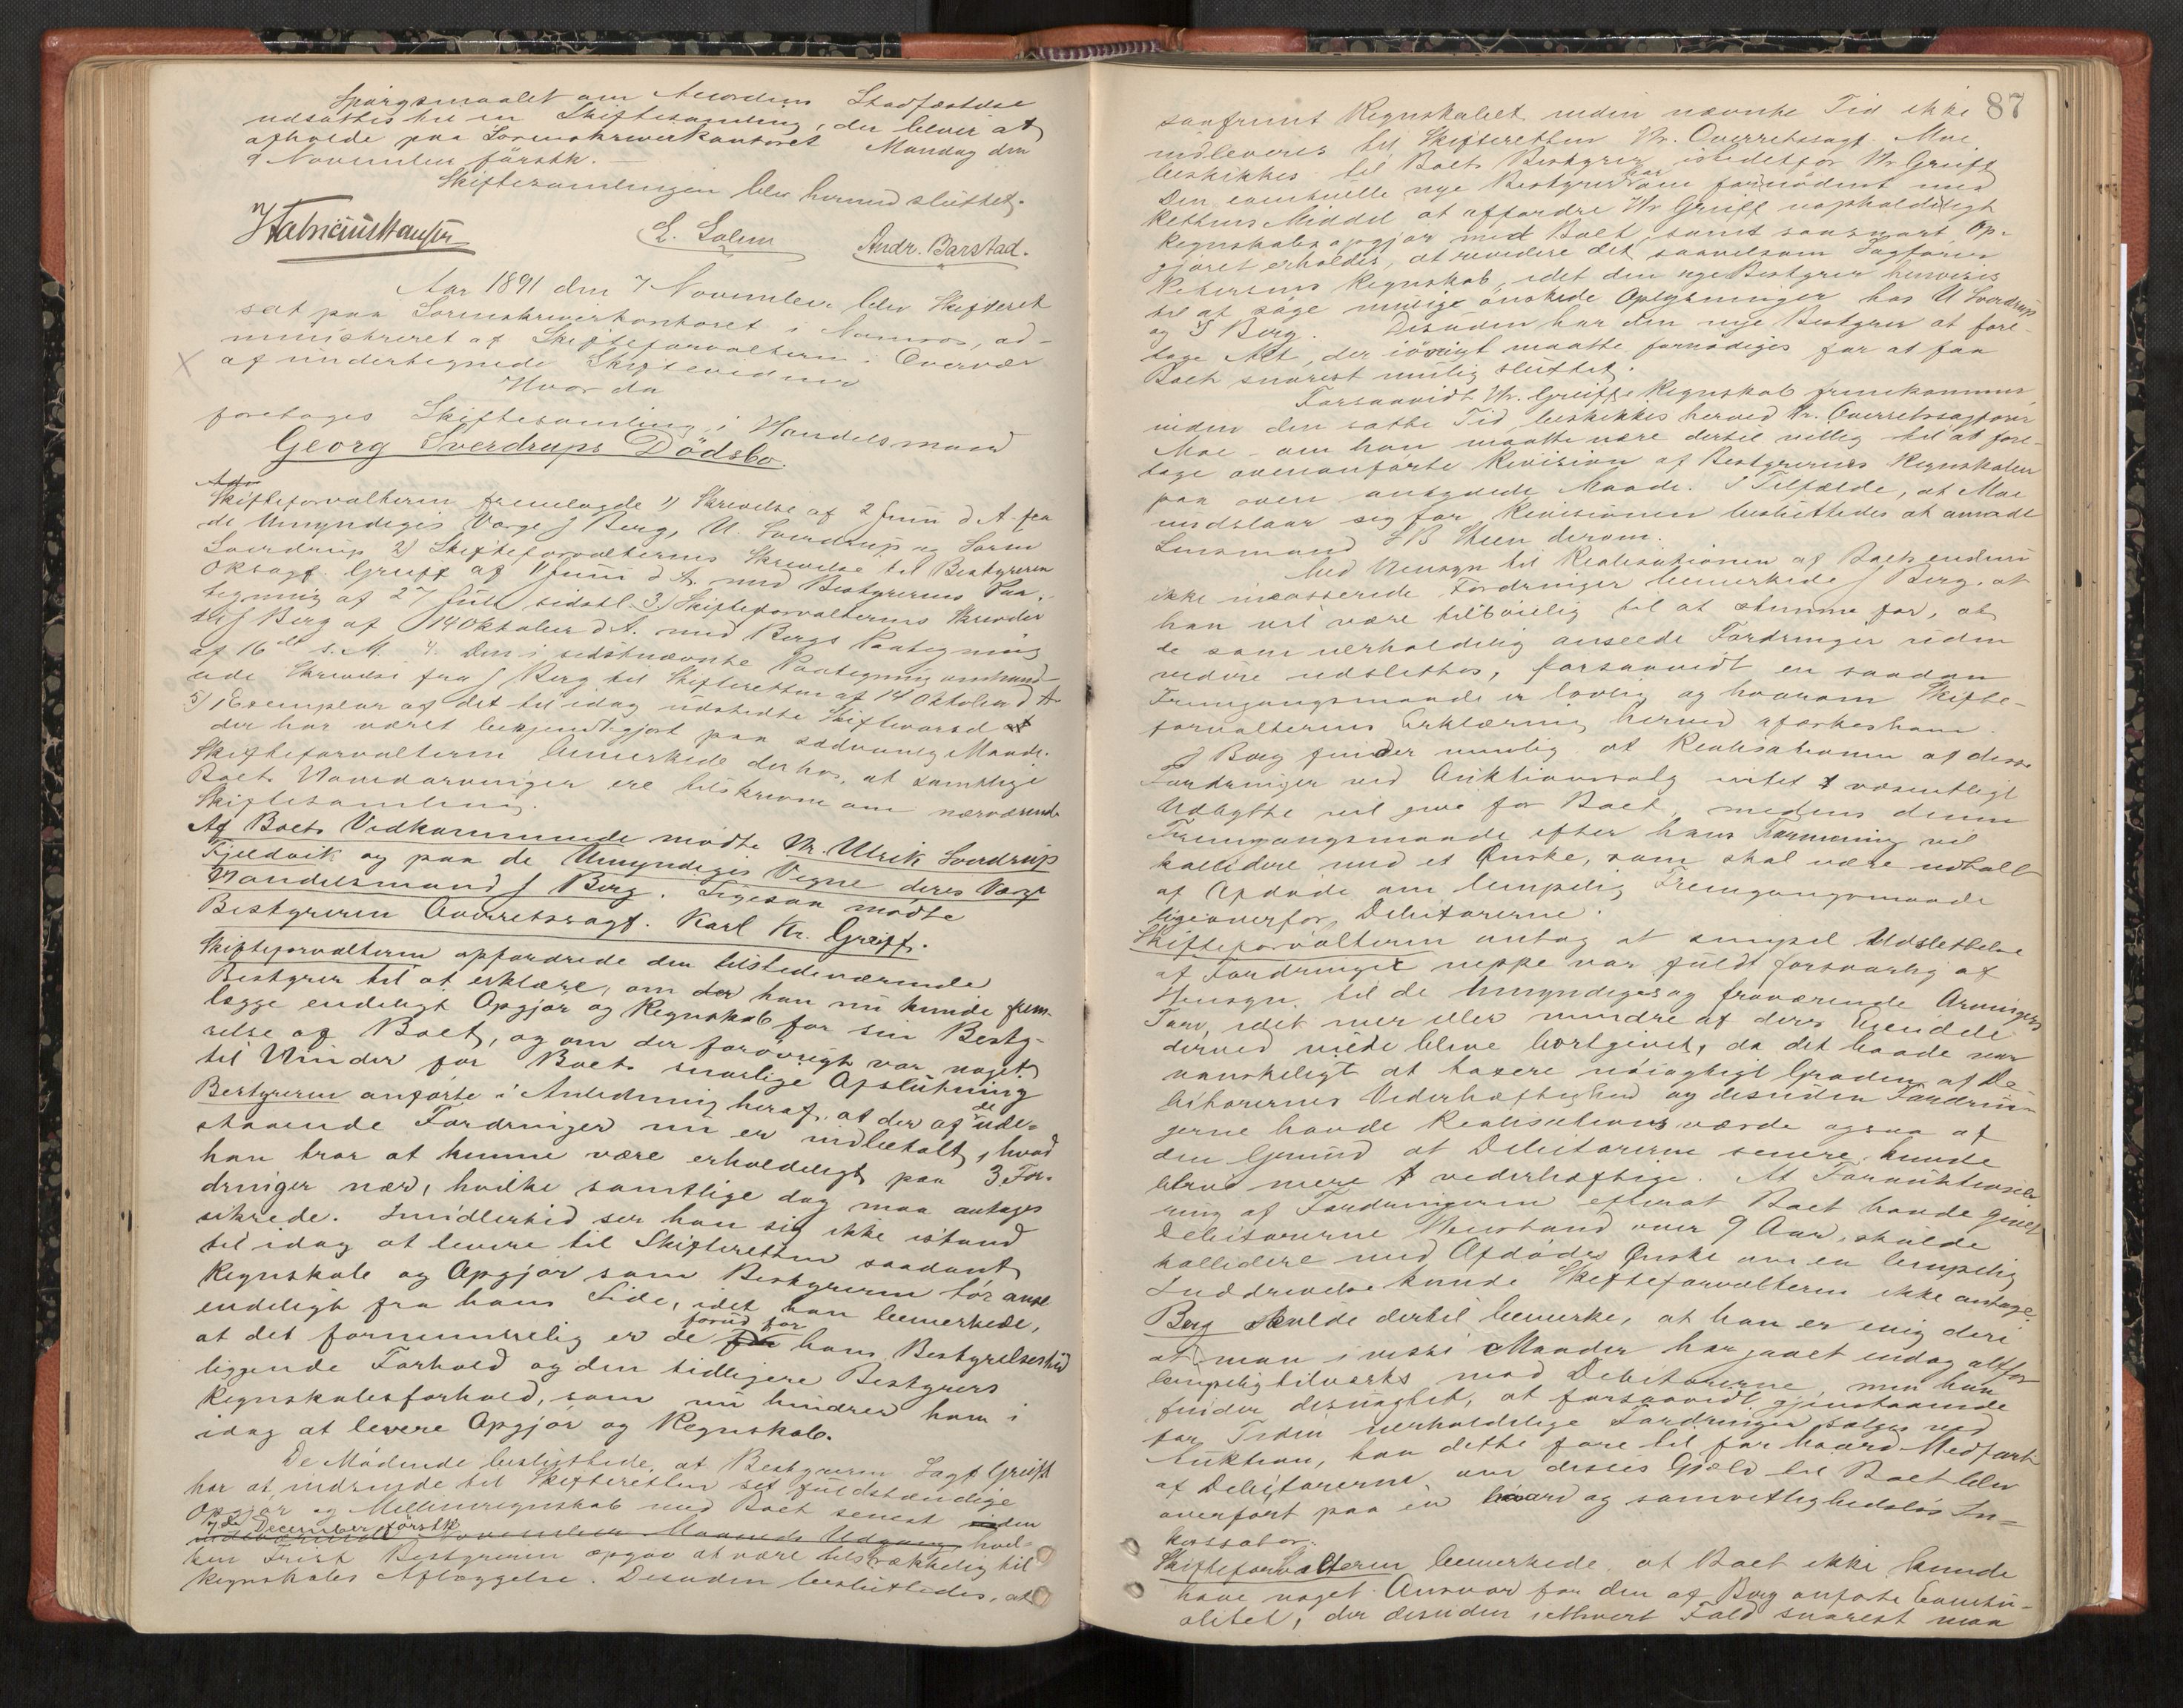 Spörgsmaalet om Accordens Stadfæstelse
udsættes til en Skiftesamling, der bliver at
afholde paa Sorenskriverkontoret Mandag den
9 November förstk. —
Skiftesamlingen blev hermed sluttet.
E. Solem
Andr. Barstad.
Aar 1891 den 7 November blev Skifteret
sat paa Sorenskriverkontoret i Namsos, ad-
ministreret af Skifteforvalteren i Overvær
af undertegnede Skiftevidner
Hvor da
foretoges Skiftesamling i Handelsmand
Georg Sverdrups Dödsbo.
Skifteforvalteren fremlagde 1) Skrivelse af 2 Juni d A fra
de Umyndiges Værge J Berg, U. Sverdrup og Sören
Sverdrup 2) Skifteforvalterens Skrivelse til Bestyreren
Oksagf. Greiff af 11 Juni d A. med Bestyrerens Paa-
tegning af 27 Juli sidstl. 3) Skifteforvalterens Skrivelse
til J Berg af 14 Oktober d A. med Bergs Paategning
af 16de s. M. 4. Den i sidstnævnte Paategning omhand-
lede Skrivelse fra J Berg til Skifteretten af 14 Oktober d A
5) 1 Exemplar af det til idag udstedte Skiftevarsel
der har været bekjendtgjort paa sædvanlig Maade.
Skifteforvalteren bemerkede derhos, at samtlige
Boets Hovedarvinger ere tilskrevne om nærværende
Skiftesamling.
Af Boets Vedkommende mödte Hr. Ulrik Sverdrup
Fjeldvik og paa de Umyndiges Vegne deres Værge
Handelsmand J Berg. Ligesaa mödte
Bestyreren Overretssagf. Karl Kr. Greiff.
Skifteforvalteren opfordrede den tilstedeværende
Bestyrer til at erklære, om der han nu kunde frem-
lægge endeligt Opgjör og Regnskab for sin Besty-
relse af Boet, og om der forövrigt var noget
til Hinder for Boets snarlige Afslutning
Bestyreren anförte i Anledning heraf, at der af de ude-
staaende Fordringer nu er indbetalt, hvad
han tror at kunne være erholdeligt paa 3 For-
dringer nær, hvilke samtlige dog maa antages
sikrede. Imidlertid ser han sig ikke istand
til idag at levere til Skifteretten saadant
Regnskab og Opgjör som Bestyreren tör anse
endeligt fra hans Side, idet han bemerkede,
at det fornemmelig er de forud for hans Bestyrelsestid
liggende Forhold og den tidligere Bestyrers
Regnskabsforhold, som nu hindrer ham i
idag at levere Opgjör og Regnskab.
De Mödende besluttede, at Bestyreren Sagf Greiff
har at indsende til Skifteretten sit fuldstændige
Opgjör og Mellemregnskab med Boet senest inden
7de December förstk. hvil-
ken Frist Bestyreren opgav at være tilstrækkelig til
Regnskabs Aflæggelse. Desuden besluttedes, at
87
saafremt Regnskabet inden nævnte Tid ikke
indleveres til Skifteretten Hr. Overretssagf. Moe
beskikkes til Boets Bestyrer istedetfor Hr Greiff
Den eventuelle nye Bestyrer har om fornödent med
Rettens Middel at affordre Hr Greiff uopholdeligt
Regnskabsopgjör med Boet, samt saasnart Op-
gjöret erholdes, at revidere det saavelsom Sagförer
Petersens Regnskab, idet den nye Bestyrer henvises
til at söge mulige önskede Oplysninger hos U Sverdrup
og J Berg. Desuden har den nye Bestyrer at fore-
tage Alt, der iövrigt maatte fornödiges for at faa
Boet snarest mulig sluttet.
Forsaavidt Hr. Greiffs Regnskab fremkommer
inden den satte Tid, beskikkes herved Hr. Overretssagförer
Moe – om han maatte være dertil villig til at fore-
tage ovenanförte Revision af Bestyrernes Regnskaber
paa oven antydede Maade. I Tilfælde, at Moe
undslaar sig for Revisionen besluttedes at anmode
Lensmand derom.
Med Hensyn til Realisationen af Boets endnu
ikke incasserede Fordringer bemerkede J Berg, at
han vil være tilböielig til at stemme for, at
de som uerholdelig ansede Fordringer uden
videre udslettes, forsaavidt en saadan
Fremgangsmaade er lovlig og hvorom Skifte-
forvalterens Erklæring herved æskes.
J Berg finder nemlig at Realisationen af disse
Fordringer ved Auktionssalg intet væsentligt
Udbytte vil give for Boet, medens denne
Fremgangsmaade efter hans Formening vil
kollidere med et Önske, som skal være udtalt
af Afdöde om lempelig Fremgangsmaade
ligeoverfor Debitorerne.
Skifteforvalteren antog at simpel Udslettelse
af Fordringer neppe var fuldt forsvarlig af
Hensyn til de Umyndiges og fraværende Arvingers
Tarv, idet mer eller mindre af deres Eiendele
derved vilde blive bortgivet, da det baade var
vanskeligt at taxere nöiagtigt Graden af De-
bitorernes Vederhæftighed og desuden Fordrin-
gerne havde Realisationsværde ogsaa af
den Grund at Debitorerne senere kunde
blive mere vederhæftige. At Forauktione-
ring af Fordringerne efterat Boet havde givet
Debitorerne Henstand over 9 Aar, skulde
kollidere med Afdödes Önske om en lempelig
Inddrivelse kunde Skifteforvalteren ikke antage.
Berg skulde dertil bemerke, at han er enig deri
at man i visse Maader har gaaet endog altfor
lempelig tilverks mod Debitorerne, men han
finder desuagtet, at forsaavidt gjenstaaende
for Tiden uerholdelige Fordringer sælges ved
Auktion, kan dette före til for haard Medfart
af Debitorerne om disses Gjæld til Boet blev
overfört paa en haard og samvittighedslös In-
kassator.
Skifteforvalteren bemerkede at Boet ikke kunde
have noget Ansvar for den af Berg anförte Eventu-
alitet, der desuden i ethvert Fald snarest maa